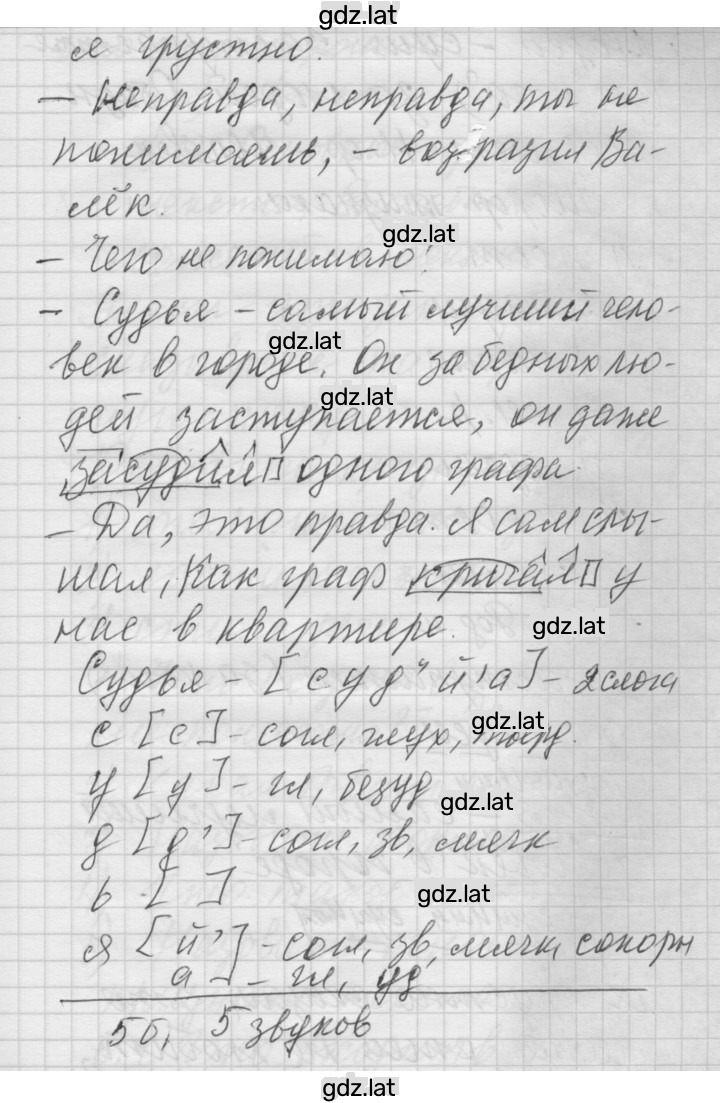 gdz.lat
я грустно.
– Неправда, неправда, ты не
понимаешь, – возразил Ва-
лёк.
gdz.lat
– Чего не понимаю?
– Судья – самый лучший чело-
gdz.lat
век в городе. Он за бедных лю-
gdz.lat
дей заступается, он даже
засудил одного графа.
– Да, это правда. Я сам слы-
шал, как граф кричал у
нас в квартире.
gdz.lat
Судья – [с у д' й' а] – 2 слога
gdz.lat
с [с] – согл, глух, твёрд.
у [у] – гл, безуд
gdz.lat
д [д'] – согл, зв, мягк
ь [ ]
gdz.lat
я [й'] – согл, зв, мягк, сонорн
а] – гл, уд
5 б, 5 звуков
gdz.lat